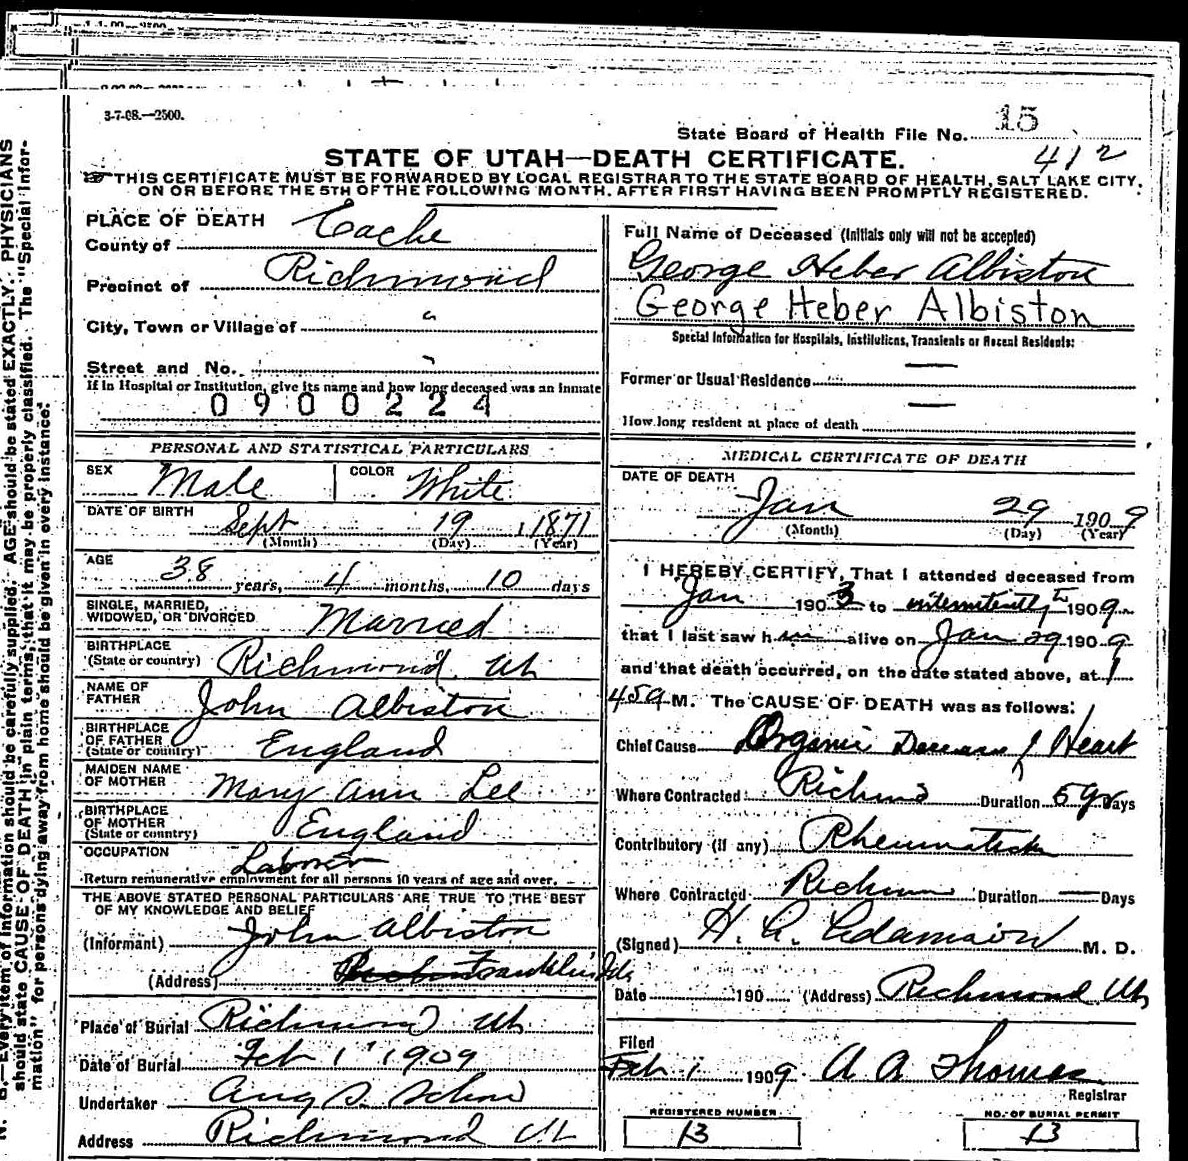 3-7-08.—2500.
State Board of Health File No. 15
412
STATE OF UTAH—DEATH CERTIFICATE.
THIS CERTIFICATE MUST BE FORWARDED BY LOCAL REGISTRAR TO THE STATE BOARD OF HEALTH, SALT LAKE CITY,
ON OR BEFORE THE 5TH OF THE FOLLOWING MONTH, AFTER FIRST HAVING BEEN PROMPTLY REGISTERED.
PLACE OF DEATH
County of Cache
Precinct of Richmond
City, Town or Village of "
Street and No.
If in Hospital or Institution, give its name and how long deceased was an inmate
0900224
PERSONAL AND STATISTICAL PARTICULARS
SEX Male COLOR White
DATE OF BIRTH Sept 19, 1871
(Month) (Day) (Year)
AGE 38 years, 4 months, 10 days
SINGLE, MARRIED,
WIDOWED, OR DIVORCED Married
BIRTHPLACE
(State or country) Richmond Ut
NAME OF
FATHER John Albiston
BIRTHPLACE
OF FATHER England
(State or country)
MAIDEN NAME
OF MOTHER Mary Ann Lee
BIRTHPLACE
OF MOTHER England
(State or country)
OCCUPATION Laborer
Return remunerative employment for all persons 10 years of age and over.
THE ABOVE STATED PERSONAL PARTICULARS ARE TRUE TO THE BEST
OF MY KNOWLEDGE AND BELIEF
(Informant) John Albiston
(Address) Franklin Ida
Place of Burial Richmond Ut
Date of Burial Feb 1 1909
Undertaker Aug S. Schow
Address Richmond Ut
Full Name of Deceased (Initials only will not be accepted)
George Heber Albiston
George Heber Albiston
Special Information for Hospitals, Institutions, Transients or Recent Residents:
Former or Usual Residence —
How long resident at place of death —
MEDICAL CERTIFICATE OF DEATH
DATE OF DEATH
Jan 29 1909
(Month) (Day) (Year)
I HEREBY CERTIFY, That I attended deceased from
Jan 1903 to intermitently to 1909
that I last saw him alive on Jan 29 1909
and that death occurred, on the date stated above, at 1
45a M. The CAUSE OF DEATH was as follows:
Chief Cause Organic Disease of Heart
Where Contracted Richmd Duration 5 yrs Days
Contributory (if any) Rheumatism
Where Contracted Richm Duration — Days
(Signed) H. G. Adamson M. D.
Date 190 (Address) Richmond Ut
Filed
Feb 1 1909. A A Thomas
Registrar
REGISTERED NUMBER
13
NO. OF BURIAL PERMIT
13
N. B.—Every item of information should be carefully supplied. AGE should be stated EXACTLY. PHYSICIANS
should state CAUSE OF DEATH in plain terms, that it may be properly classified. The "Special Infor-
mation" for persons dying away from home should be given in every instance.